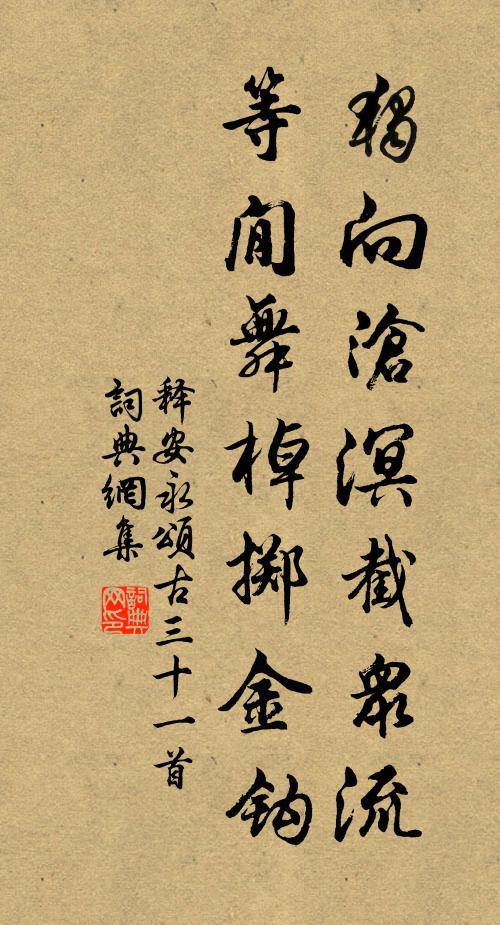 獨向滄溟截眾流
等閒舞棹擲金鈎
释安永頌古三十一首
詞典網集
詞典网印